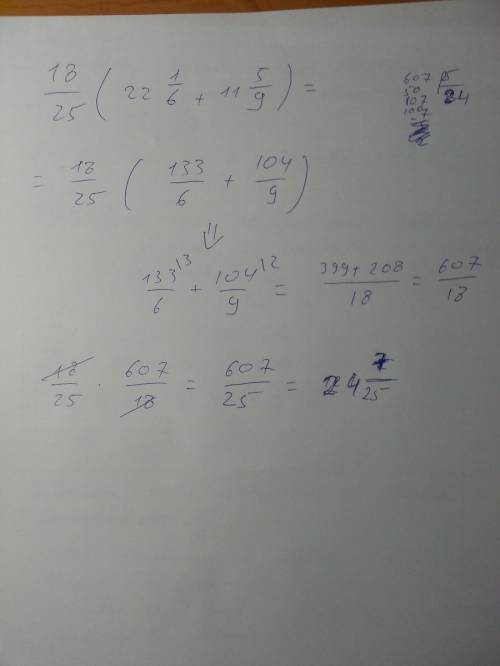 18/25 ( 22 1/6 + 11 5/9 ) =
607 | 5
50 | 24
107
100
7
= 18/25 ( 133/6 + 104/9 )
⇓
133/6 \3 + 104/9 \2 = 399+208/18 = 607/18
18/25 · 607/18 = 607/25 = 24 7/25